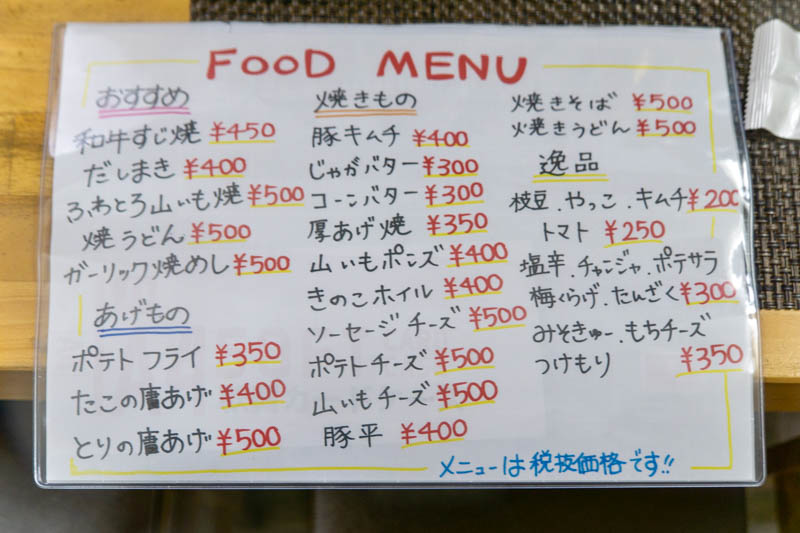 FOOD MENU
おすすめ
和牛すじ焼 ¥450
だしまき ¥400
ふわとろ山いも焼 ¥500
焼うどん ¥500
ガーリック焼めし ¥500
あげもの
ポテトフライ ¥350
たこの唐あげ ¥400
とりの唐あげ ¥500
焼きもの
豚キムチ ¥400
じゃがバター ¥300
コーンバター ¥300
厚あげ焼 ¥350
山いもポンズ ¥400
きのこホイル ¥400
ソーセージチーズ ¥500
ポテトチーズ ¥500
山いもチーズ ¥500
豚平 ¥400
焼きそば ¥500
焼きうどん ¥500
逸品
枝豆.やっこ.キムチ ¥200
トマト ¥250
塩辛.チャンジャ.ポテサラ
梅くらげ.たんざく ¥300
みそきゅー.もちチーズ
つけもり ¥350
メニューは税抜価格です!!